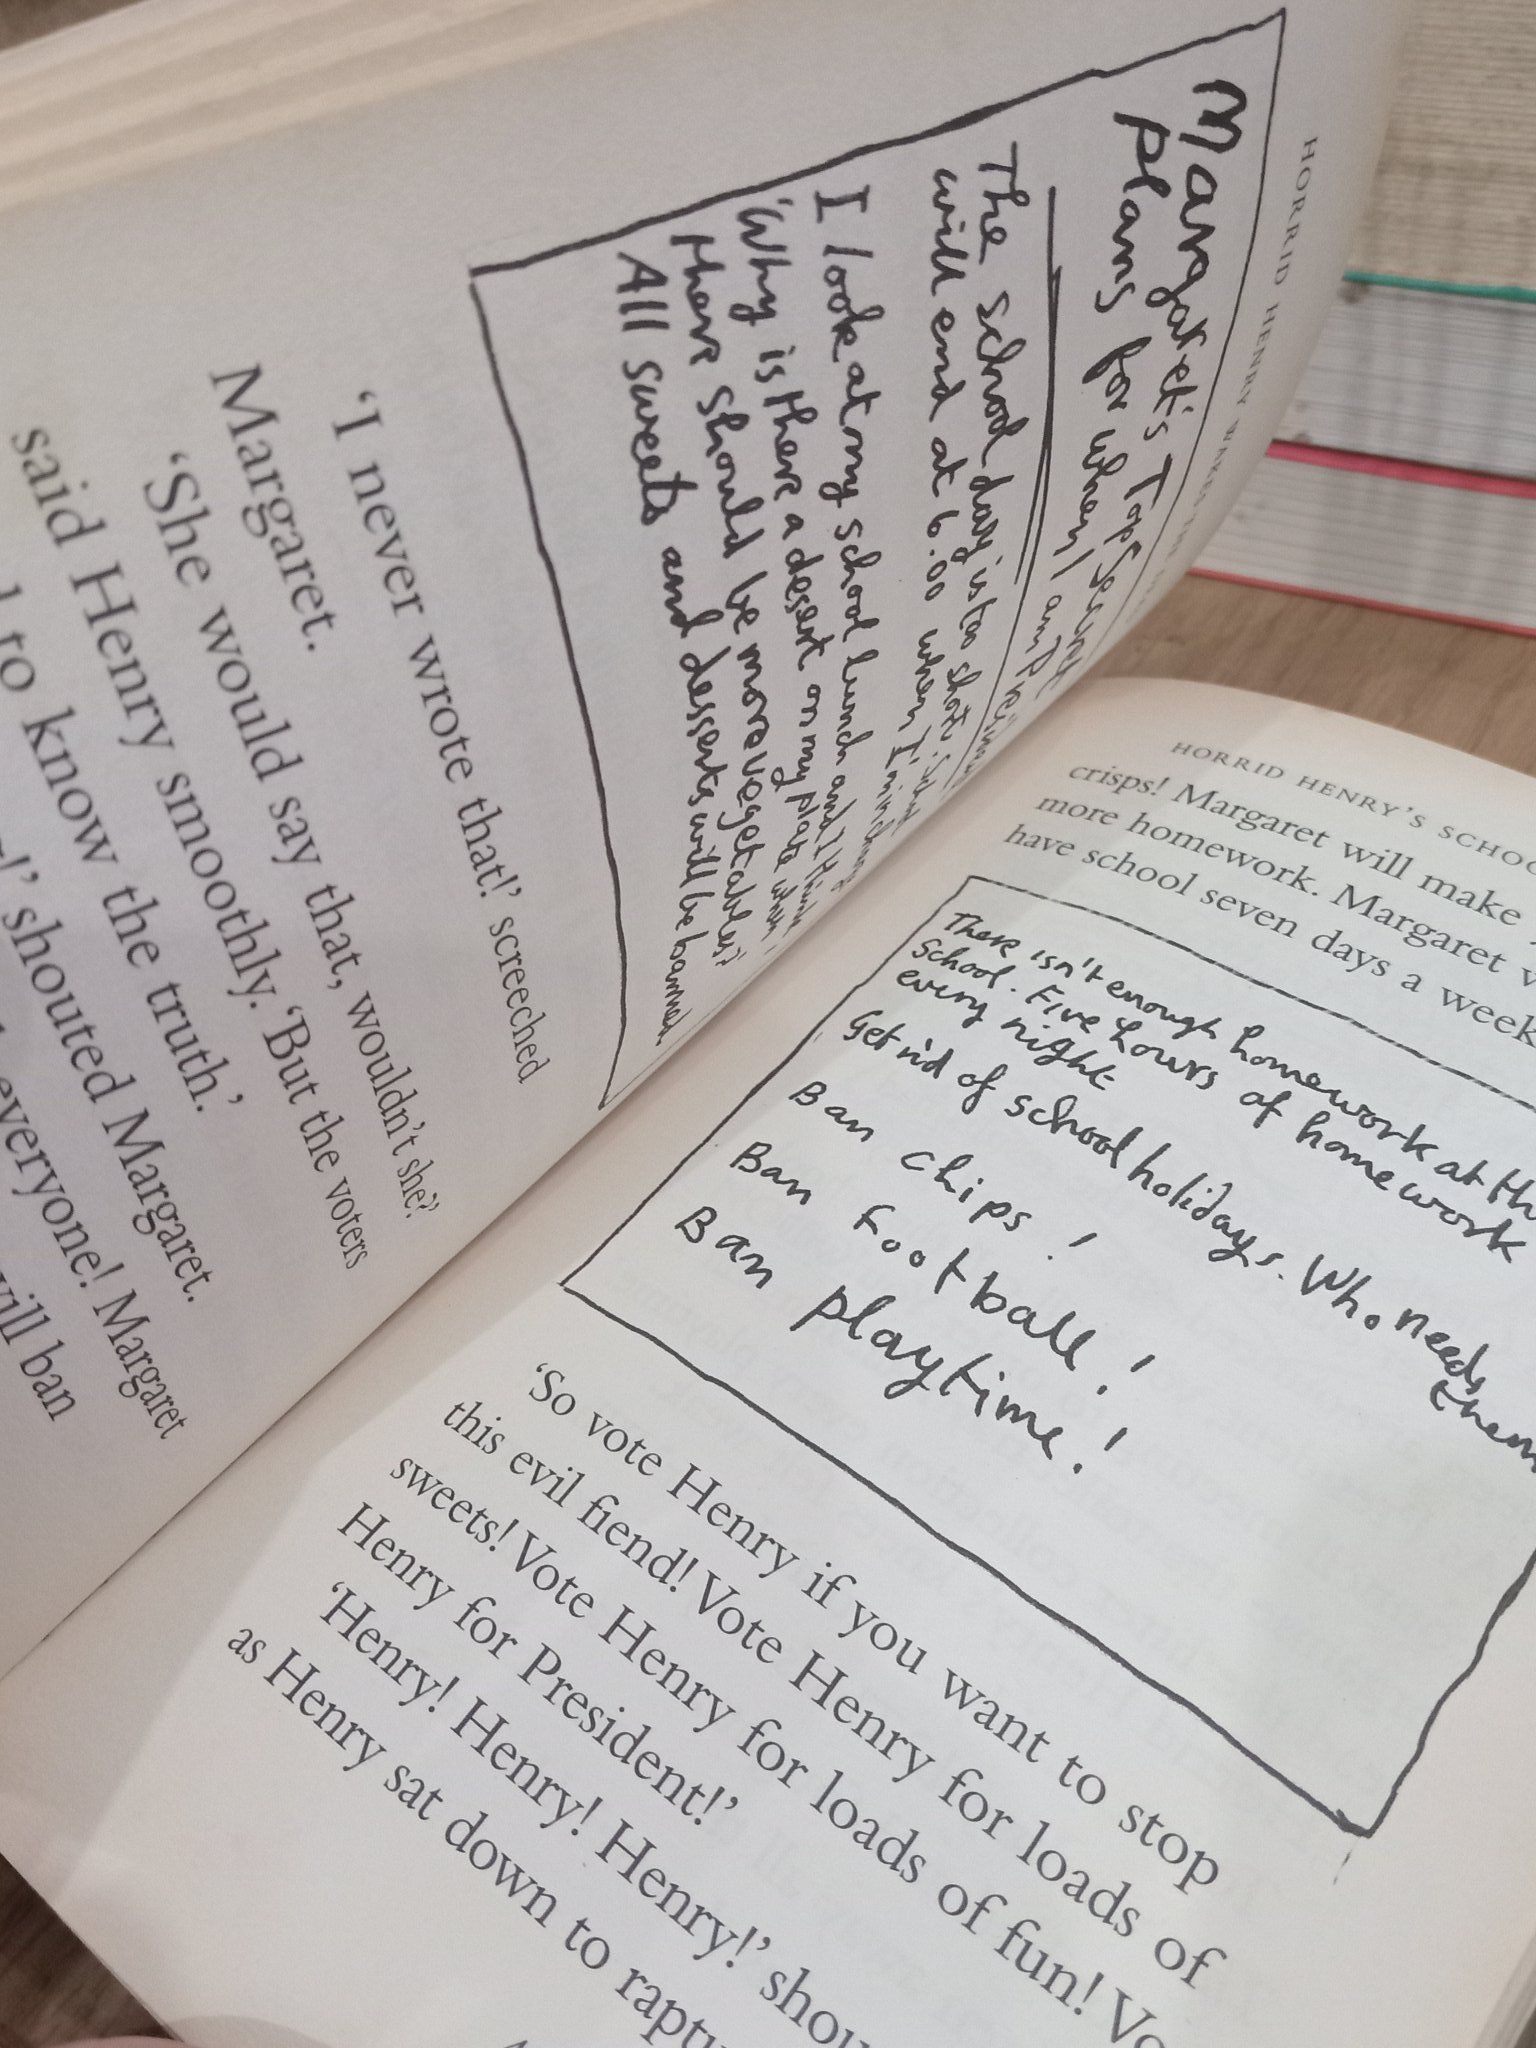 HORRID HENRY
Margaret's Top Secret
plans for when I am
The school day is too short. School
will end at 6.00 when I'm in charge
I look at my school lunch and I think
'Why is there a desert on my plate when
there should be more vegetables?'
All sweets and desserts will be banned
'I never wrote that!' screeched
Margaret.
'She would say that, wouldn't she?'
said Henry smoothly. 'But the voters
to know the truth.'
shouted Margaret.
everyone! Margaret
will ban
HORRID HENRY'S
crisps! Margaret will make
more homework. Margaret
have school seven days a week
There isn't enough homework at
School. Five hours of homework
every night
Get rid of school holidays. Who needs
them
Ban chips!
Ban Football!
Ban playtime!
'So vote Henry if you want to stop
this evil fiend! Vote Henry for loads of
sweets! Vote Henry for loads of fun!
Henry for President!'
'Henry! Henry! Henry!'
as Henry sat down to